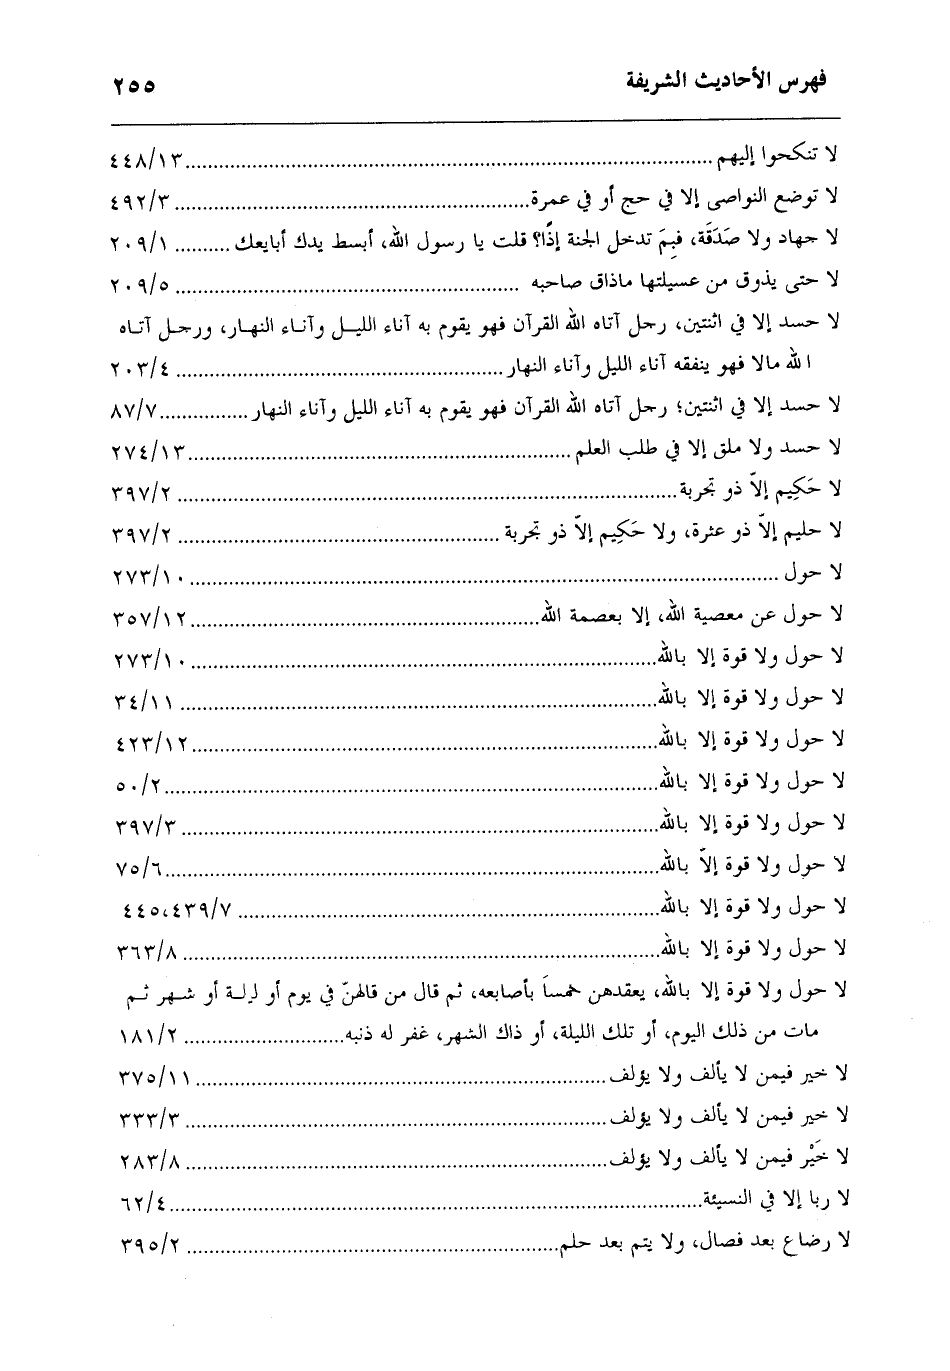 فهرس الأحاديث الشريفة ٢٥٥
لا تنكحوا إليهم ٤٤٨/١٣
لا توضع النواصى إلا في حج أو في عمرة ٤٩٢/٣
لا جهاد ولا صَدَقَة، فبِمَ تدخل الجنة إذًا؟ قلت يا رسول الله، أبسط يدك أبايعك ٢٠٩/١
لا حتى يذوق من عسيلتها ماذاق صاحبه ٢٠٩/٥
لا حسد إلا في اثنتين، رجل آتاه الله القرآن فهو يقوم به آناء الليل وآناء النهار، ورجل آتاه
الله مالا فهو ينفقه آناء الليل وآناء النهار ٢٠٣/٤
لا حسد إلا في اثنتين؛ رجل آتاه الله القرآن فهو يقوم به آناء الليل وآناء النهار ٨٧/٧
لا حسد ولا ملق إلا في طلب العلم ٢٧٤/١٣
لا حَكِيم إلاّ ذو تجربة ٣٩٧/٢
لا حليم إلاّ ذو عثرة، ولا حَكِيم إلاّ ذو تجربة ٣٩٧/٢
لا حول ٢٧٣/١٠
لا حول عن معصية الله، إلا بعصمة الله ٣٥٧/١٢
لا حول ولا قوة إلا بالله ٢٧٣/١٠
لا حول ولا قوة إلا بالله ٣٤/١١
لا حول ولا قوة إلا بالله ٤٢٣/١٢
لا حول ولا قوة إلا بالله ٥٠/٢
لا حول ولا قوة إلا بالله ٣٩٧/٣
لا حول ولا قوة إلاّ بالله ٧٥/٦
لا حول ولا قوة إلا بالله ٤٤٥،٤٣٩/٧
لا حول ولا قوة إلا بالله ٣٦٣/٨
لا حول ولا قوة إلا بالله، يعقدهن خمساً بأصابعه، ثم قال من قالهنّ في يوم أو ليلة أو شهر ثم
مات من ذلك اليوم، أو تلك الليلة، أو ذاك الشهر، غفر له ذنبه ١٨١/٢
لا خير فيمن لا يألف ولا يؤلف ٣٧٥/١١
لا خير فيمن لا يألف ولا يؤلف ٣٣٣/٣
لا خَيْر فيمن لا يألف ولا يؤلف ٢٨٣/٨
لا ربا إلا في النسيئة ٦٢/٤
لا رضاع بعد فصال، ولا يتم بعد حلم ٣٩٥/٢